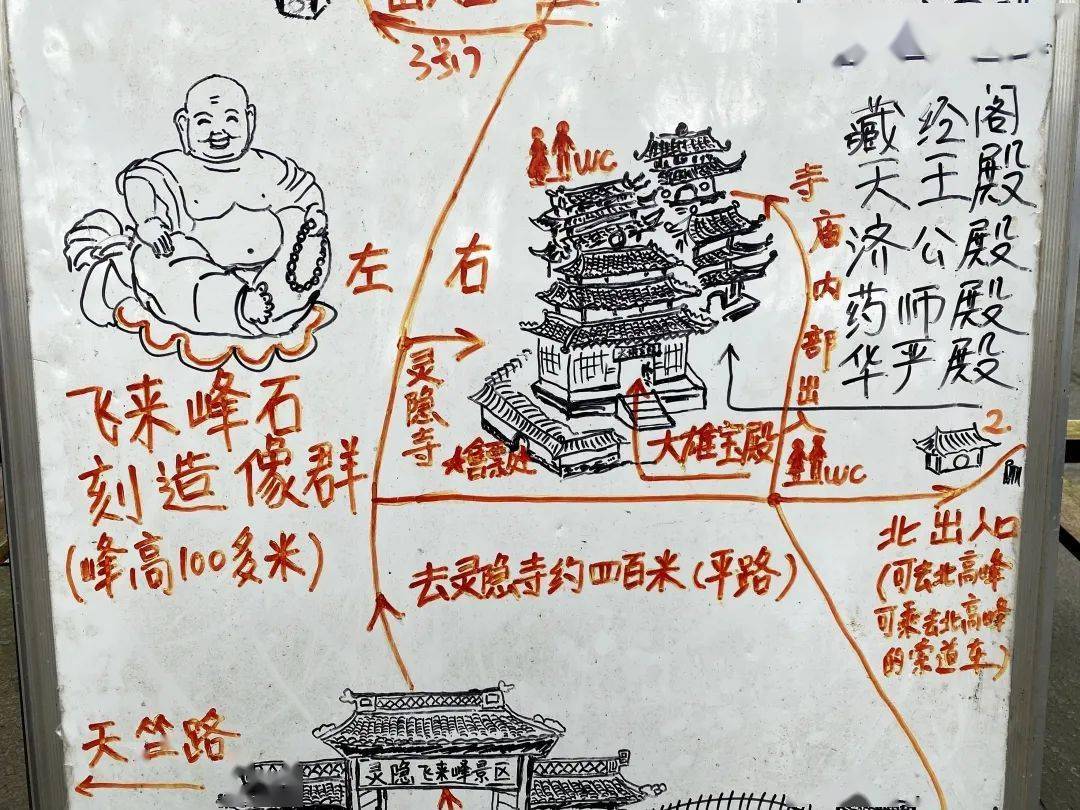 3号门
藏经阁
天王殿
济公殿
药师殿
华严殿
WC
寺庙内部出入
左 右
灵隐寺
飞来峰石
刻造像群
(峰高100多米)
售票处
大雄宝殿
WC
2
北出入口
(可去北高峰
可乘去北高峰
的索道车)
去灵隐寺约四百米(平路)
天竺路
灵隐飞来峰景区